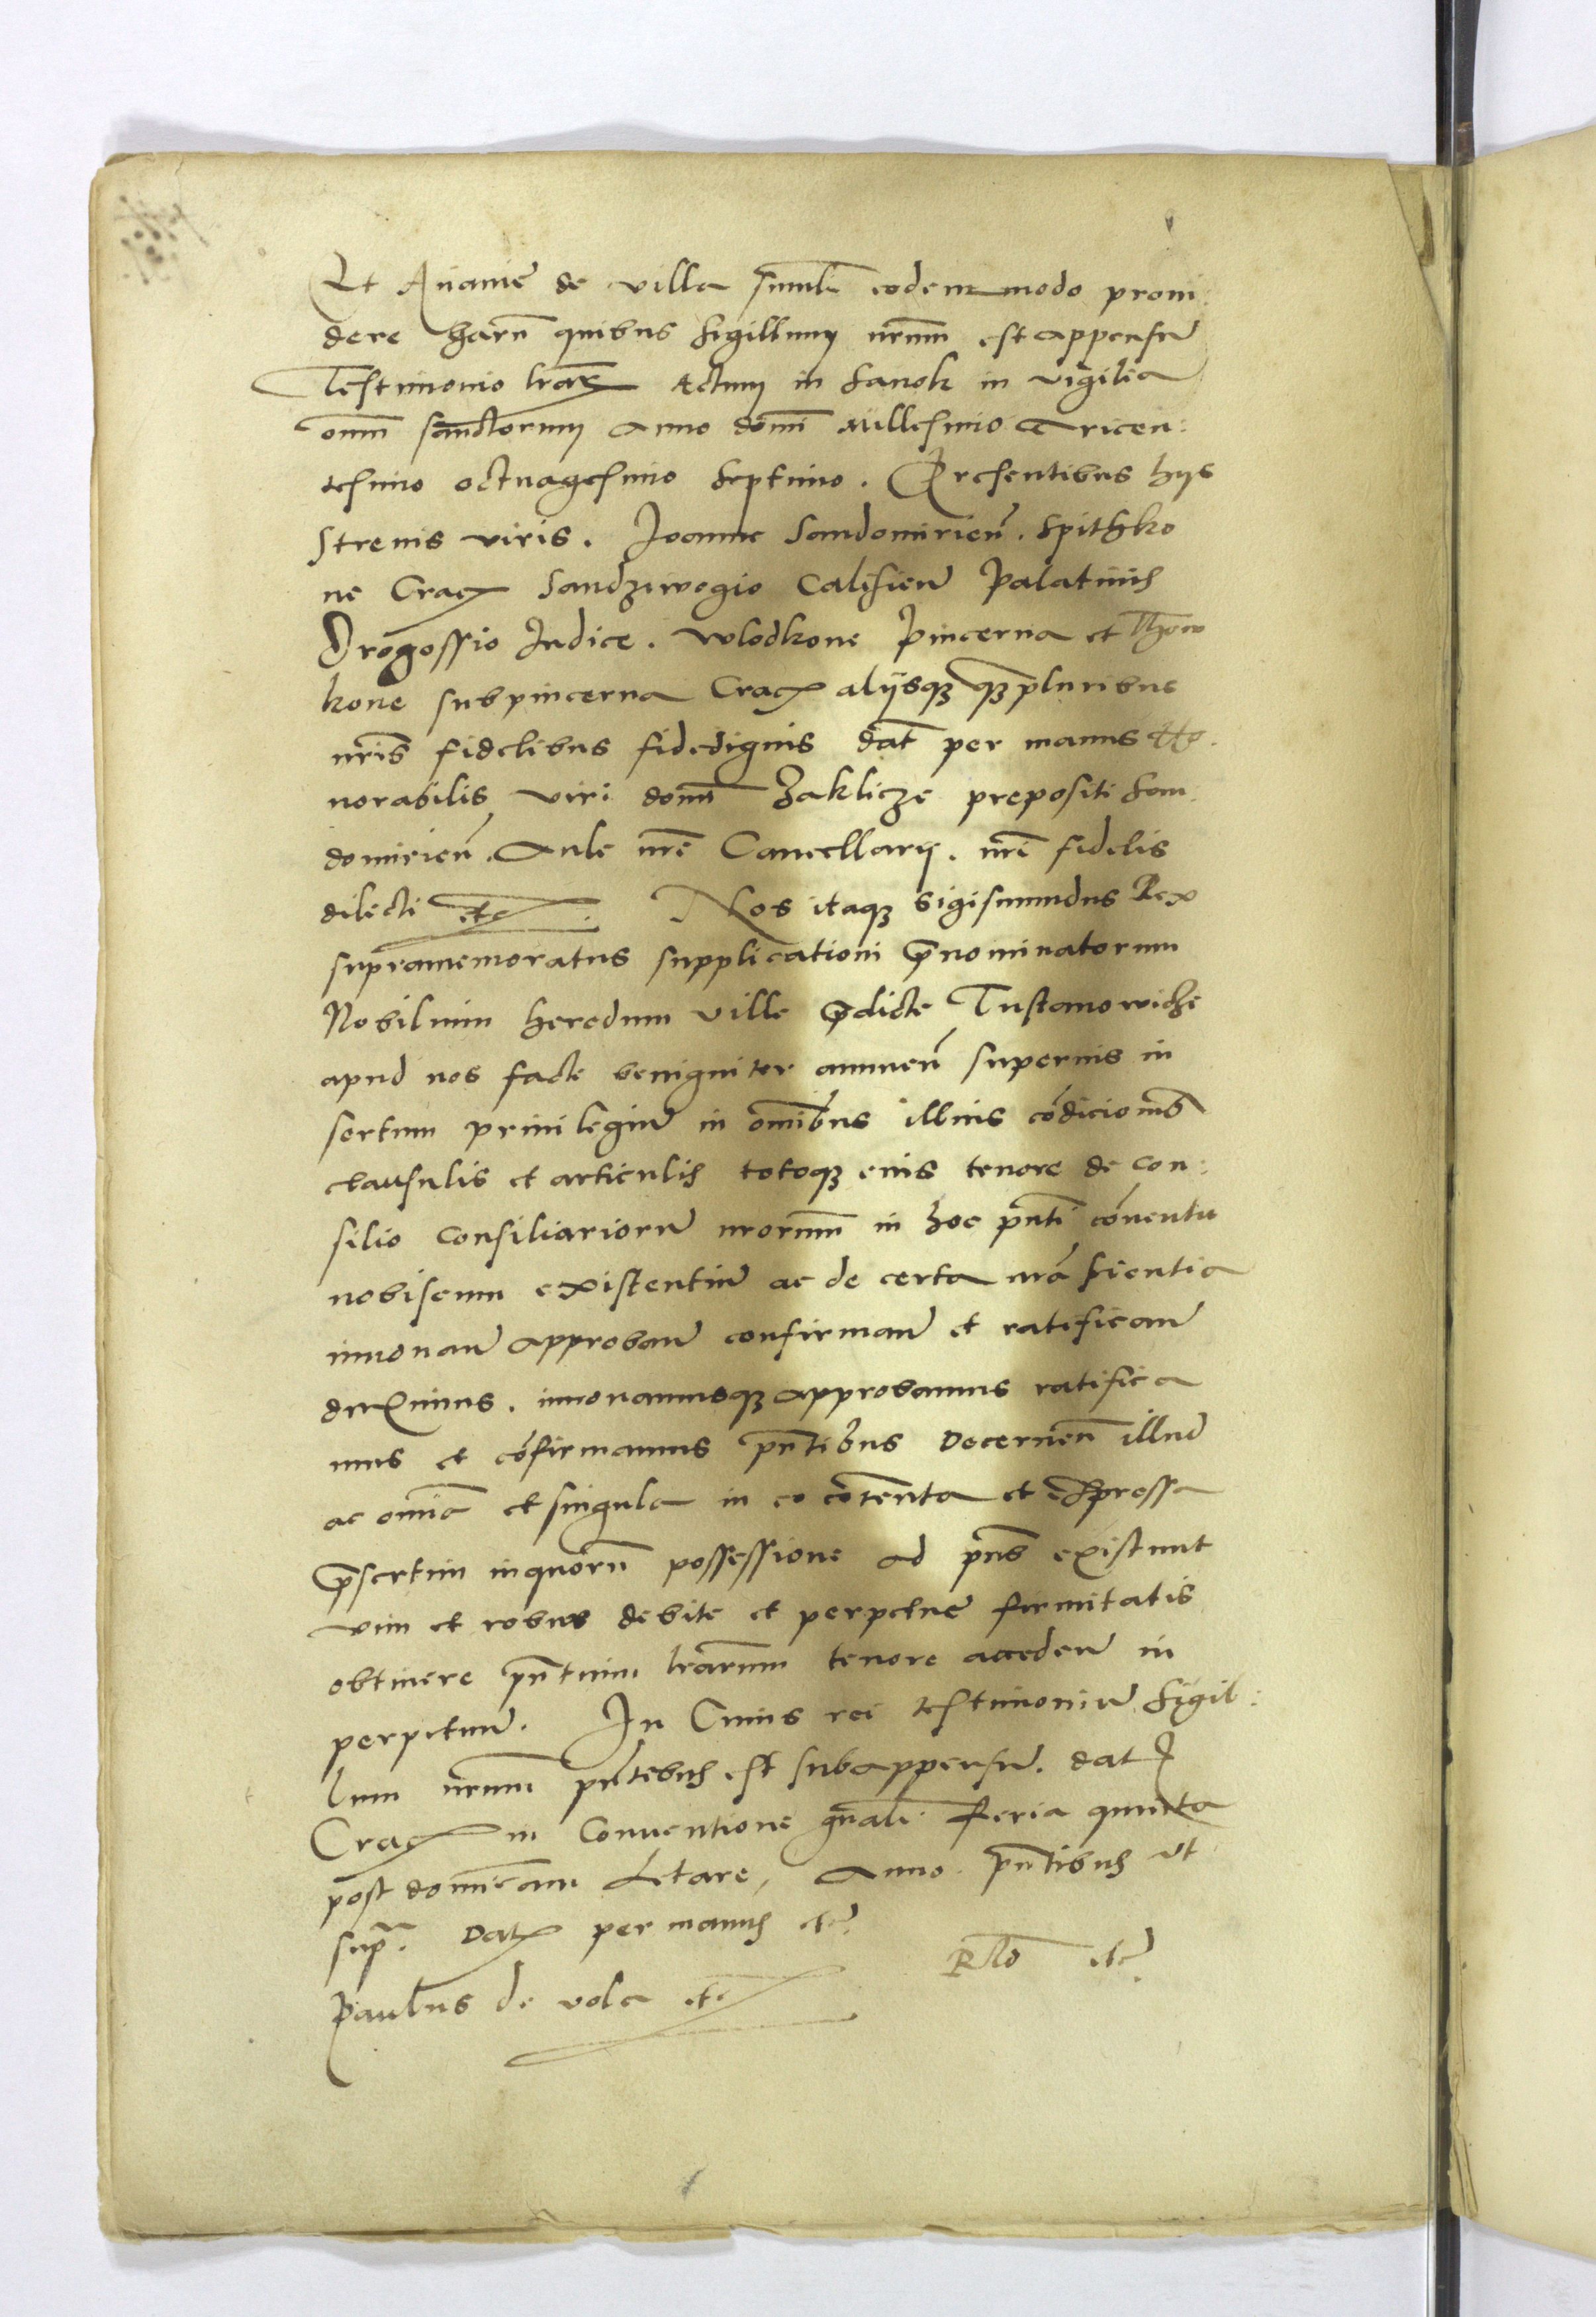 Et Ananie de villa simili eodem modo provi
dere harũ quibus sigillum nrum est appensũ
Testimonio lrar Actum in Sanok in vigilia
omn sanctorum Anno domi Millesimo Tricen:
tesimo octuagesimo septimo. Presentibus hijs
strenis viris. Joanne Sandomirien̄. Spithko
ne Crac Sandziwogio Calisien Palatinis
Drogossio Judice. Wlodkone Pincerna et
kone subpincerna Crac alijsq qpluribus
nris fidelibus fidedignis dat per manus Ho
norabilis viri domi Zaklicze prepositi San
domirien̄. Aule nre Cancellarij. nri fidelis
dilecti etc. Nos itaq Sigismundus Rex
supramemoratus supplicationi p̄nominatorum
Nobilium heredum ville p̄dicte Tustanowicze
apud nos facte benigniter annuen̄ superius in
sertum privilegiũ in omibus illius cōdicionib
clausulis et articulis totoq eius tenore de con:
silio consiliariorũ nrorum in hoc pnti cōventu
nobiscum existentiũ ac de certa nra scientia
innovanđ approbanđ confirmanđ et ratificanđ
duximus. innovamusq approbamus ratifica
mus et cōfirmamus pntibus Decernen̄ illud
ac omia et singula in eo cōtenta et expressa
p̄sertim in quorũ possessione ad pns existunt
vim et robur debite et perpetue firmitatis
obtinere pntium lrarum tenore acceden in
perpetuũ. In Cuius rei testimoniũ Sigil:
lum nrum pntebus est subappensũ. dat
Crac in Conventione gnali feria quinta
post dominicam Letare, Anno pntibus ut
supr. Dat per manus etc
Rlo etc
Paulus de vola etc